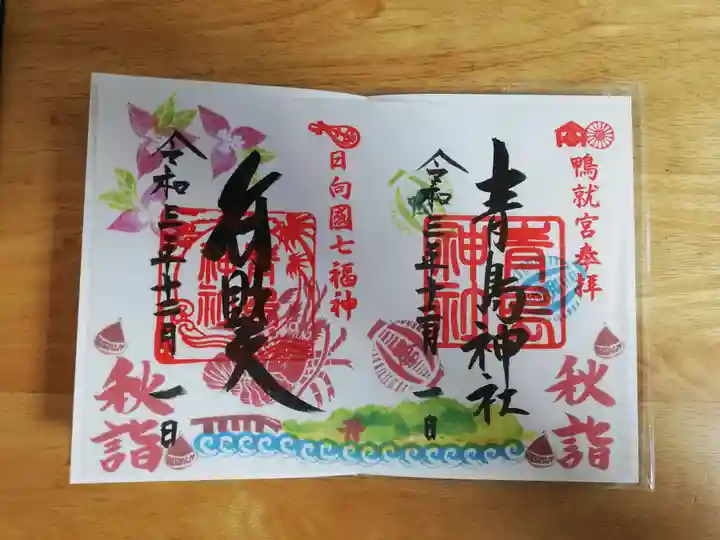 鴨就宮奉拝
青島神社
令和三年十二月一日
青島神社
秋詣
日向國七福神
弁財天
令和三年十二月一日
秋詣